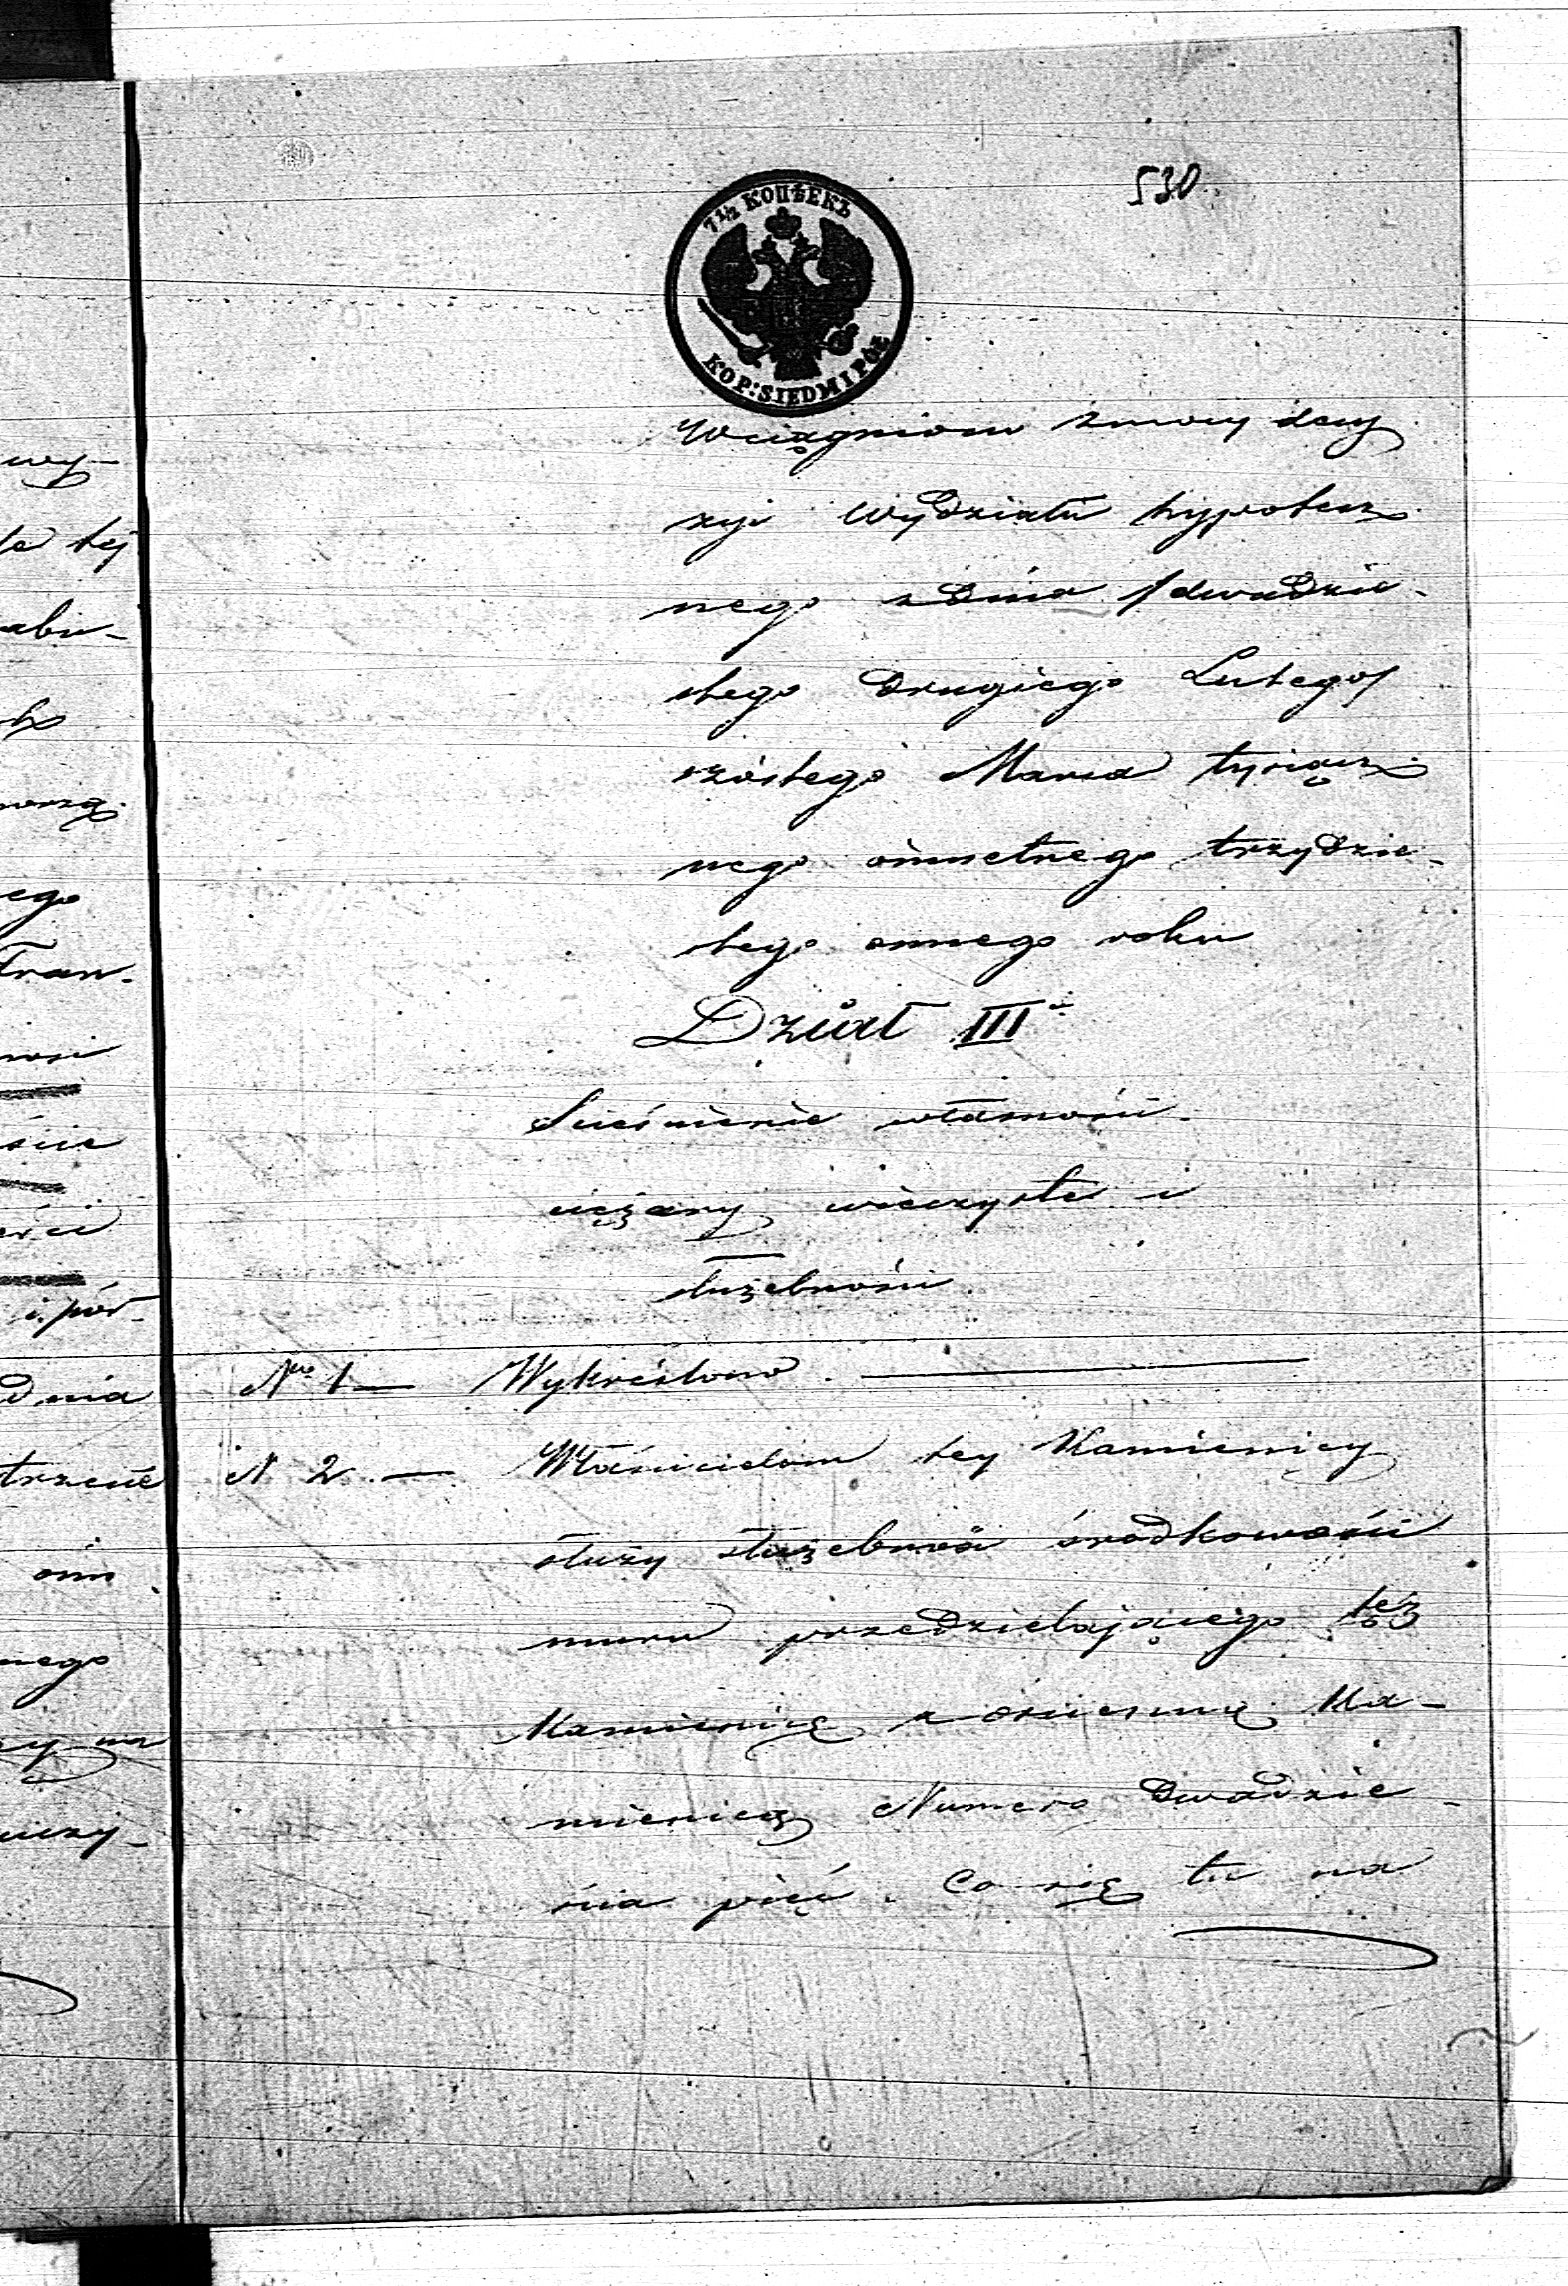 530
7 1/2 КОПѢЕКЪ
KOP: SIEDM I PÓŁ
Wciągniono z mocy decy
zyi Wydziału hypotecz
nego z dnia /dwudzie-
stego drugiego Lutego/
szóstego Marca tysiącz
nego ośmsetnego trzydzie-
stego osmego roku
Dział III
Ścieśnienie własności
ciężary wieczyste i
służebności
No 1 — Wykreślono. —
N 2. — Właścicielom tey Kamienicy
służy służebność środkowości
muru przedzielającego tęż
Kamienicę z ościenną Ka-
mienicą Numero Dwadzie-
ścia pięć. Co się tu na
wy-
tej
ego
Fran-
i pół-
dnia
nego